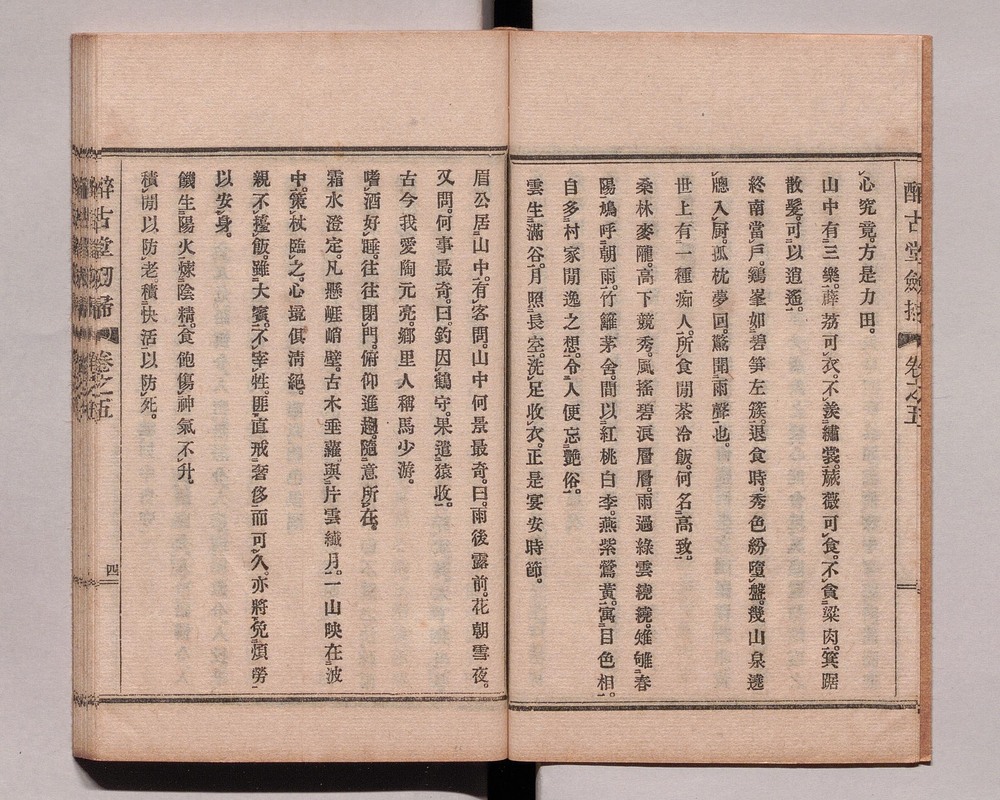 心究竟。方是力田。
山中有三樂。薜荔可衣。不羨繡裳。蕨薇可食。不貪粱肉。箕踞
散髮。可以逍遙。
終南當戶。鷄峯如碧笋左簇。退食時。秀色紛墮盤。幾山泉遶
牕入厨。孤枕夢回。驚聞雨聲也。
世上有一種痴人。所食閒茶冷飯。何名高致。
桑林麥隴。高下競秀。風搖碧浪層層。雨過綠雲繞繞。雉雊春
陽。鳩呼朝雨。竹籬茅舍。間以紅桃白李。燕紫鶯黃。寓目色相。
自多村家閒逸之想。令人便忘艷俗。
雲生滿谷。月照長空。洗足收衣。正是宴安時節。
眉公居山中。有客問山中何景最奇。曰。雨後露前。花朝雪夜。
又問。何事最奇。曰。釣因鶴守。果遣猿收。
古今我愛陶元亮。鄉里人稱馬少游。
嗜酒好睡。往往閉門。俯仰進趨。隨意所在。
霜水澄定。凡懸崕峭壁。古木垂蘿。與片雲纖月。一山映在波
中。策杖臨之。心境俱清絕。
親不擡飯。雖大賓。不宰牲。匪直戒奢侈而可久。亦將免煩勞
以安身。
饑生陽火煉陰精。食飽傷神氣不升。
積閒以防老。積快活以防死。
醉古堂劒掃
卷之五
四